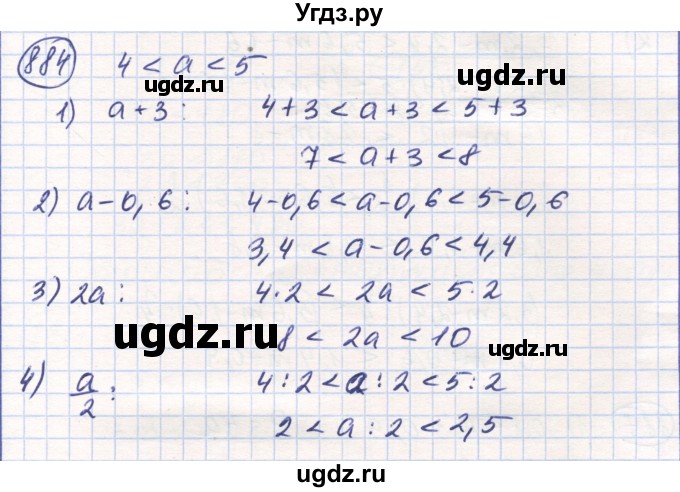 Угдз.ру
884 4 < a < 5
ugdz.ru ugdz.ru
1) a + 3 : 4 + 3 < a + 3 < 5 + 3
7 < a + 3 < 8
2) a - 0,6 : 4 - 0,6 < a - 0,6 < 5 - 0,6
3,4 < a - 0,6 < 4,4
3) 2a : 4 · 2 < 2a < 5 · 2
ugdz.ru 8 < 2a < 10 ugdz.ru
4) a/2 : 4 : 2 < a : 2 < 5 : 2
2 < a : 2 < 2,5
ugdz.ru
ugdz.ru